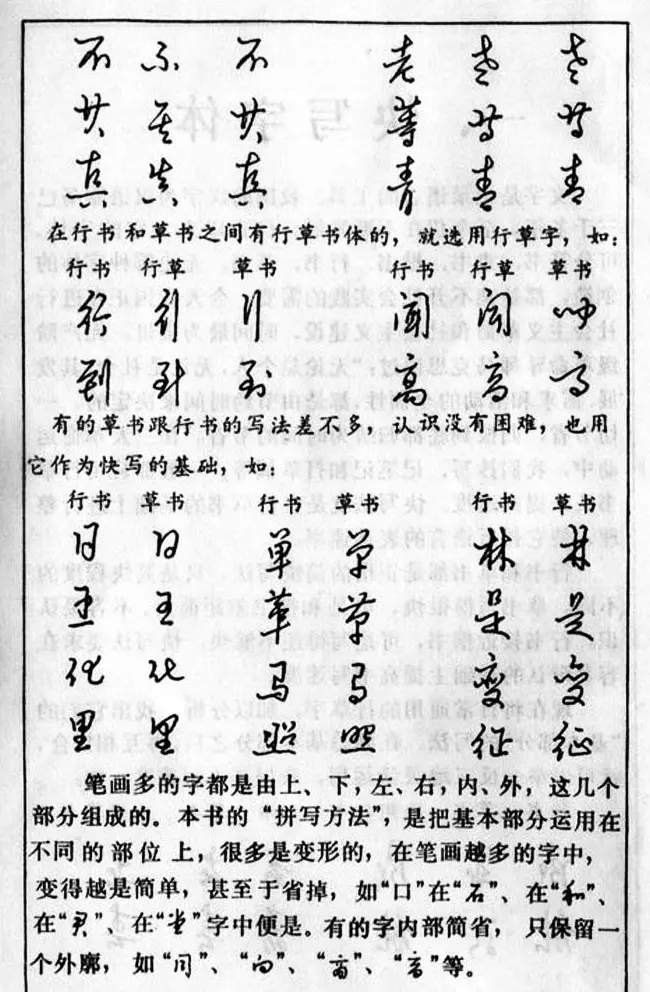 不 不 不 老 老 老
共 共 共 等 等 等
真 真 真 青 青 青
在行书和草书之间有行草书体的，就选用行草字，如：
行书 行草 草书 行书 行草 草书
行 行 行 闻 闻 闻
到 到 到 高 高 高
有的草书跟行书的写法差不多，认识没有困难，也用
它作为快写的基础，如：
行书 草书 行书 草书 行书 草书
日 日 单 单 林 林
王 王 革 革 是 是
化 化 马 马 变 变
里 里 照 照 征 征
笔画多的字都是由上、下，左、右，内、外，这几个
部分组成的。本书的“拼写方法”，是把基本部分运用在
不同的部位上，很多是变形的，在笔画越多的字中，
变得越是简单，甚至于省掉，如“口”在“石”、在“和”、
在“君”、在“堂”字中便是。有的字内部简省，只保留一
个外廓，如“同”、“向”、“高”、“高”等。